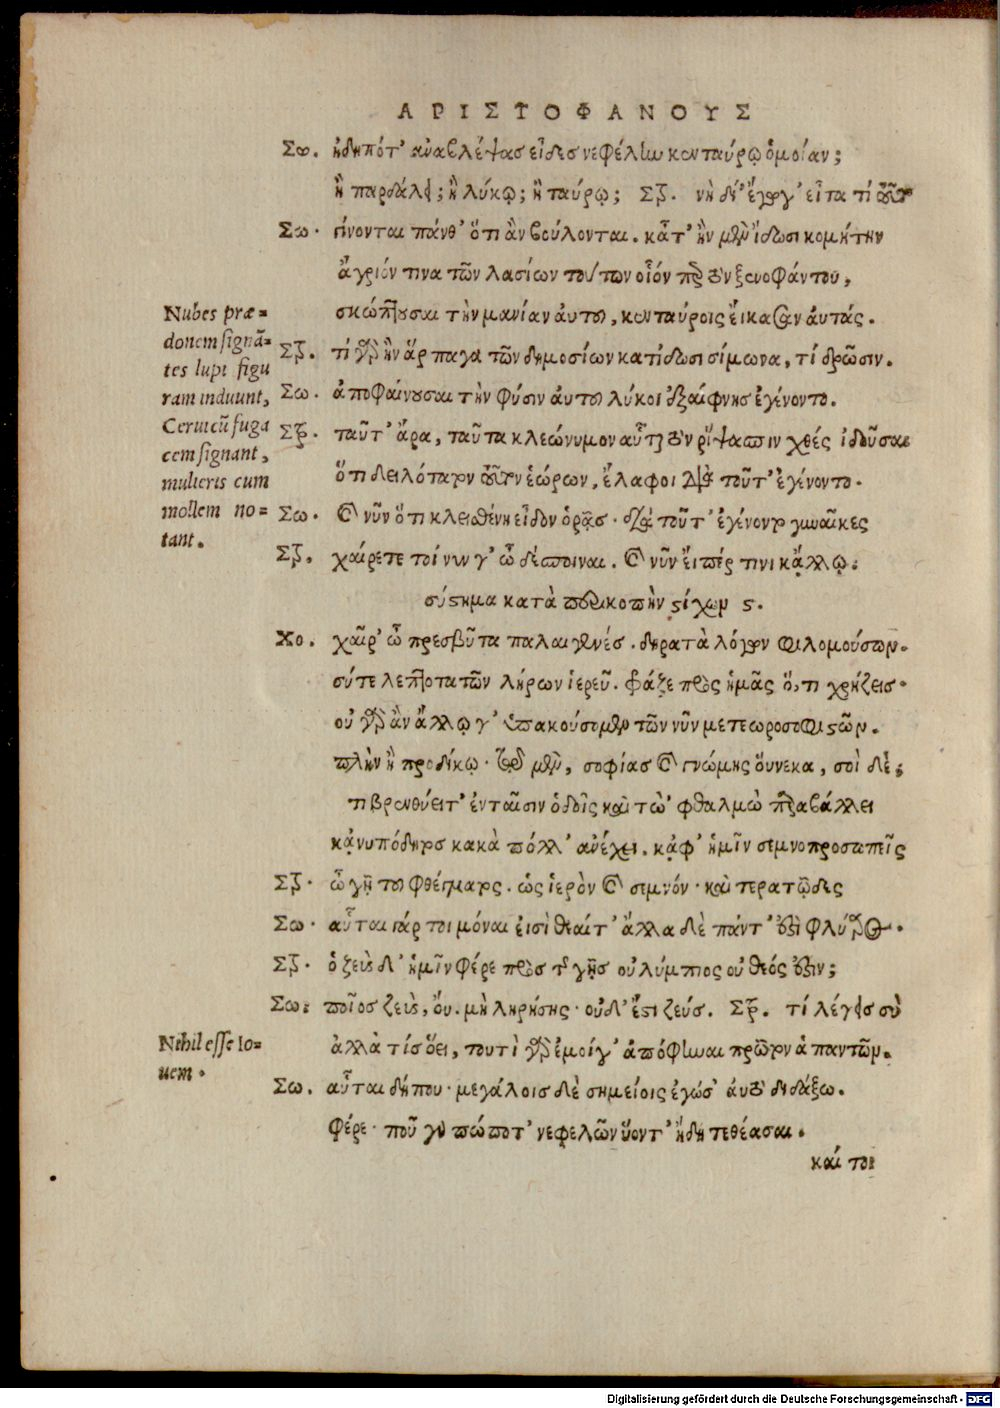 ΑΡΙΣΤΟΦΑΝΟΥΣ
Σω. ἤδη πότ' ἀναβλέψας εἶδες νεφέλην κενταύρῳ ὁμοίαν;
ἢ παρδάλει; ἢ λύκῳ; ἢ ταύρῳ; Στρ. νὴ δί' ἔγωγ' εἶτα τί τοῦτο
Σω. γίνονται πάνθ' ὅτι ἂν βούλονται. κᾆτ' ἢν μὲν ἴδωσι κομήτην
ἄγριόν τινα τῶν λασίων τούτων οἷόν περ τὸν ξενοφάντου,
σκώπτουσαι τὴν μανίαν αὐτοῦ, κενταύροις εἴκασαν αὑτάς.
Nubes præ=
donem signã=
tes lupi figu
ram induunt,
Ceruicũ fuga
cem signant,
mulieris cum
mollem no=
tant.
Στρ. τί γὰρ ἢν ἅρπαγα τῶν δημοσίων κατίδωσι σίμωνα, τί δρῶσιν.
Σω. ἀποφαίνουσαι τὴν φύσιν αὐτοῦ λύκοι ἐξαίφνης ἐγένοντο.
Στρ. ταῦτ' ἄρα, ταῦτα κλεώνυμον αὗται τὸν ρίψασπιν χθές ἰδοῦσαι
ὅτι δειλότατον τοῦτον ἑώρων, ἔλαφοι διὰ τοῦτ' ἐγένοντο.
Σω. καὶ νῦν ὅτι κλεισθένη εἶδον ὁρᾷς. διὰ τοῦτ' ἐγένοντο γυναῖκες
Στρ. χαίρετε τοίνυν γ' ὦ δέσποιναι. καὶ νῦν εἴπέρ τινι κᾄλλῳ.
σύστημα κατὰ περικοπὴν στίχων ϛ.
Χο. χαῖρ' ὦ πρεσβῦτα παλαιγενές. θηρατὰ λόγων φιλομούσων.
σύτε λεπτοτάτων λήρων ἱερεῦ. φράζε πρὸς ἡμᾶς ὅ, τι χρήζεις.
οὐ γὰρ ἂν ἄλλῳ γ' ὑπακούσομεν τῶν νῦν μετεωροσοφιστῶν.
πλὴν ἢ προδίκῳ. τῷ μὲν, σοφίας καὶ γνώμης οὕνεκα, σοὶ δὲ;
τι βρενθύει τ' ἐν ταῖσιν ὁδοῖς καὶ τὼ' φθαλμὼ παραβάλλει
κἀνυπόδητος κακὰ πόλλ' ἀνέχει. κἀφ' ἡμῖν σεμνοπροσωπεῖς
Στρ. ὦ γῆ τοῦ φθέγματος. ὡς ἱερὸν καὶ σεμνόν. καὶ τερατῶδες
Σω. αὗται γάρ τοι μόναι εἰσὶ θεαίτ' ἄλλα δὲ πάντ' ἐστὶ φλύαρος.
Στρ. ὁ ζεὺς δ' ἡμῖν φέρε πρὸς τῆς γῆς οὑλύμπιος οὐ θεός ἐστιν;
Σω: ποῖος ζεὺς, οὔ. μὴ ληρήσῃς. οὐδ' ἔστι ζεύς. Στρ. τί λέγεις σὺ
Nihil esse Io=
uem.
ἀλλὰ τίς ὕει, τουτὶ γὰρ ἐμοίγ' ἀπόφηναι πρῶτον ἁπαντῶν.
Σω. αὗται δήπου. μεγάλοις δὲ σημείοις ἐγώσ' αὐτὸ διδάξω.
φέρε. ποῦ γὰρ πώποτ' νεφελῶν ὕοντ' ἤδη τεθέασαι.
καί τοι
Digitalisierung gefördert durch die Deutsche Forschungsgemeinschaft - DFG